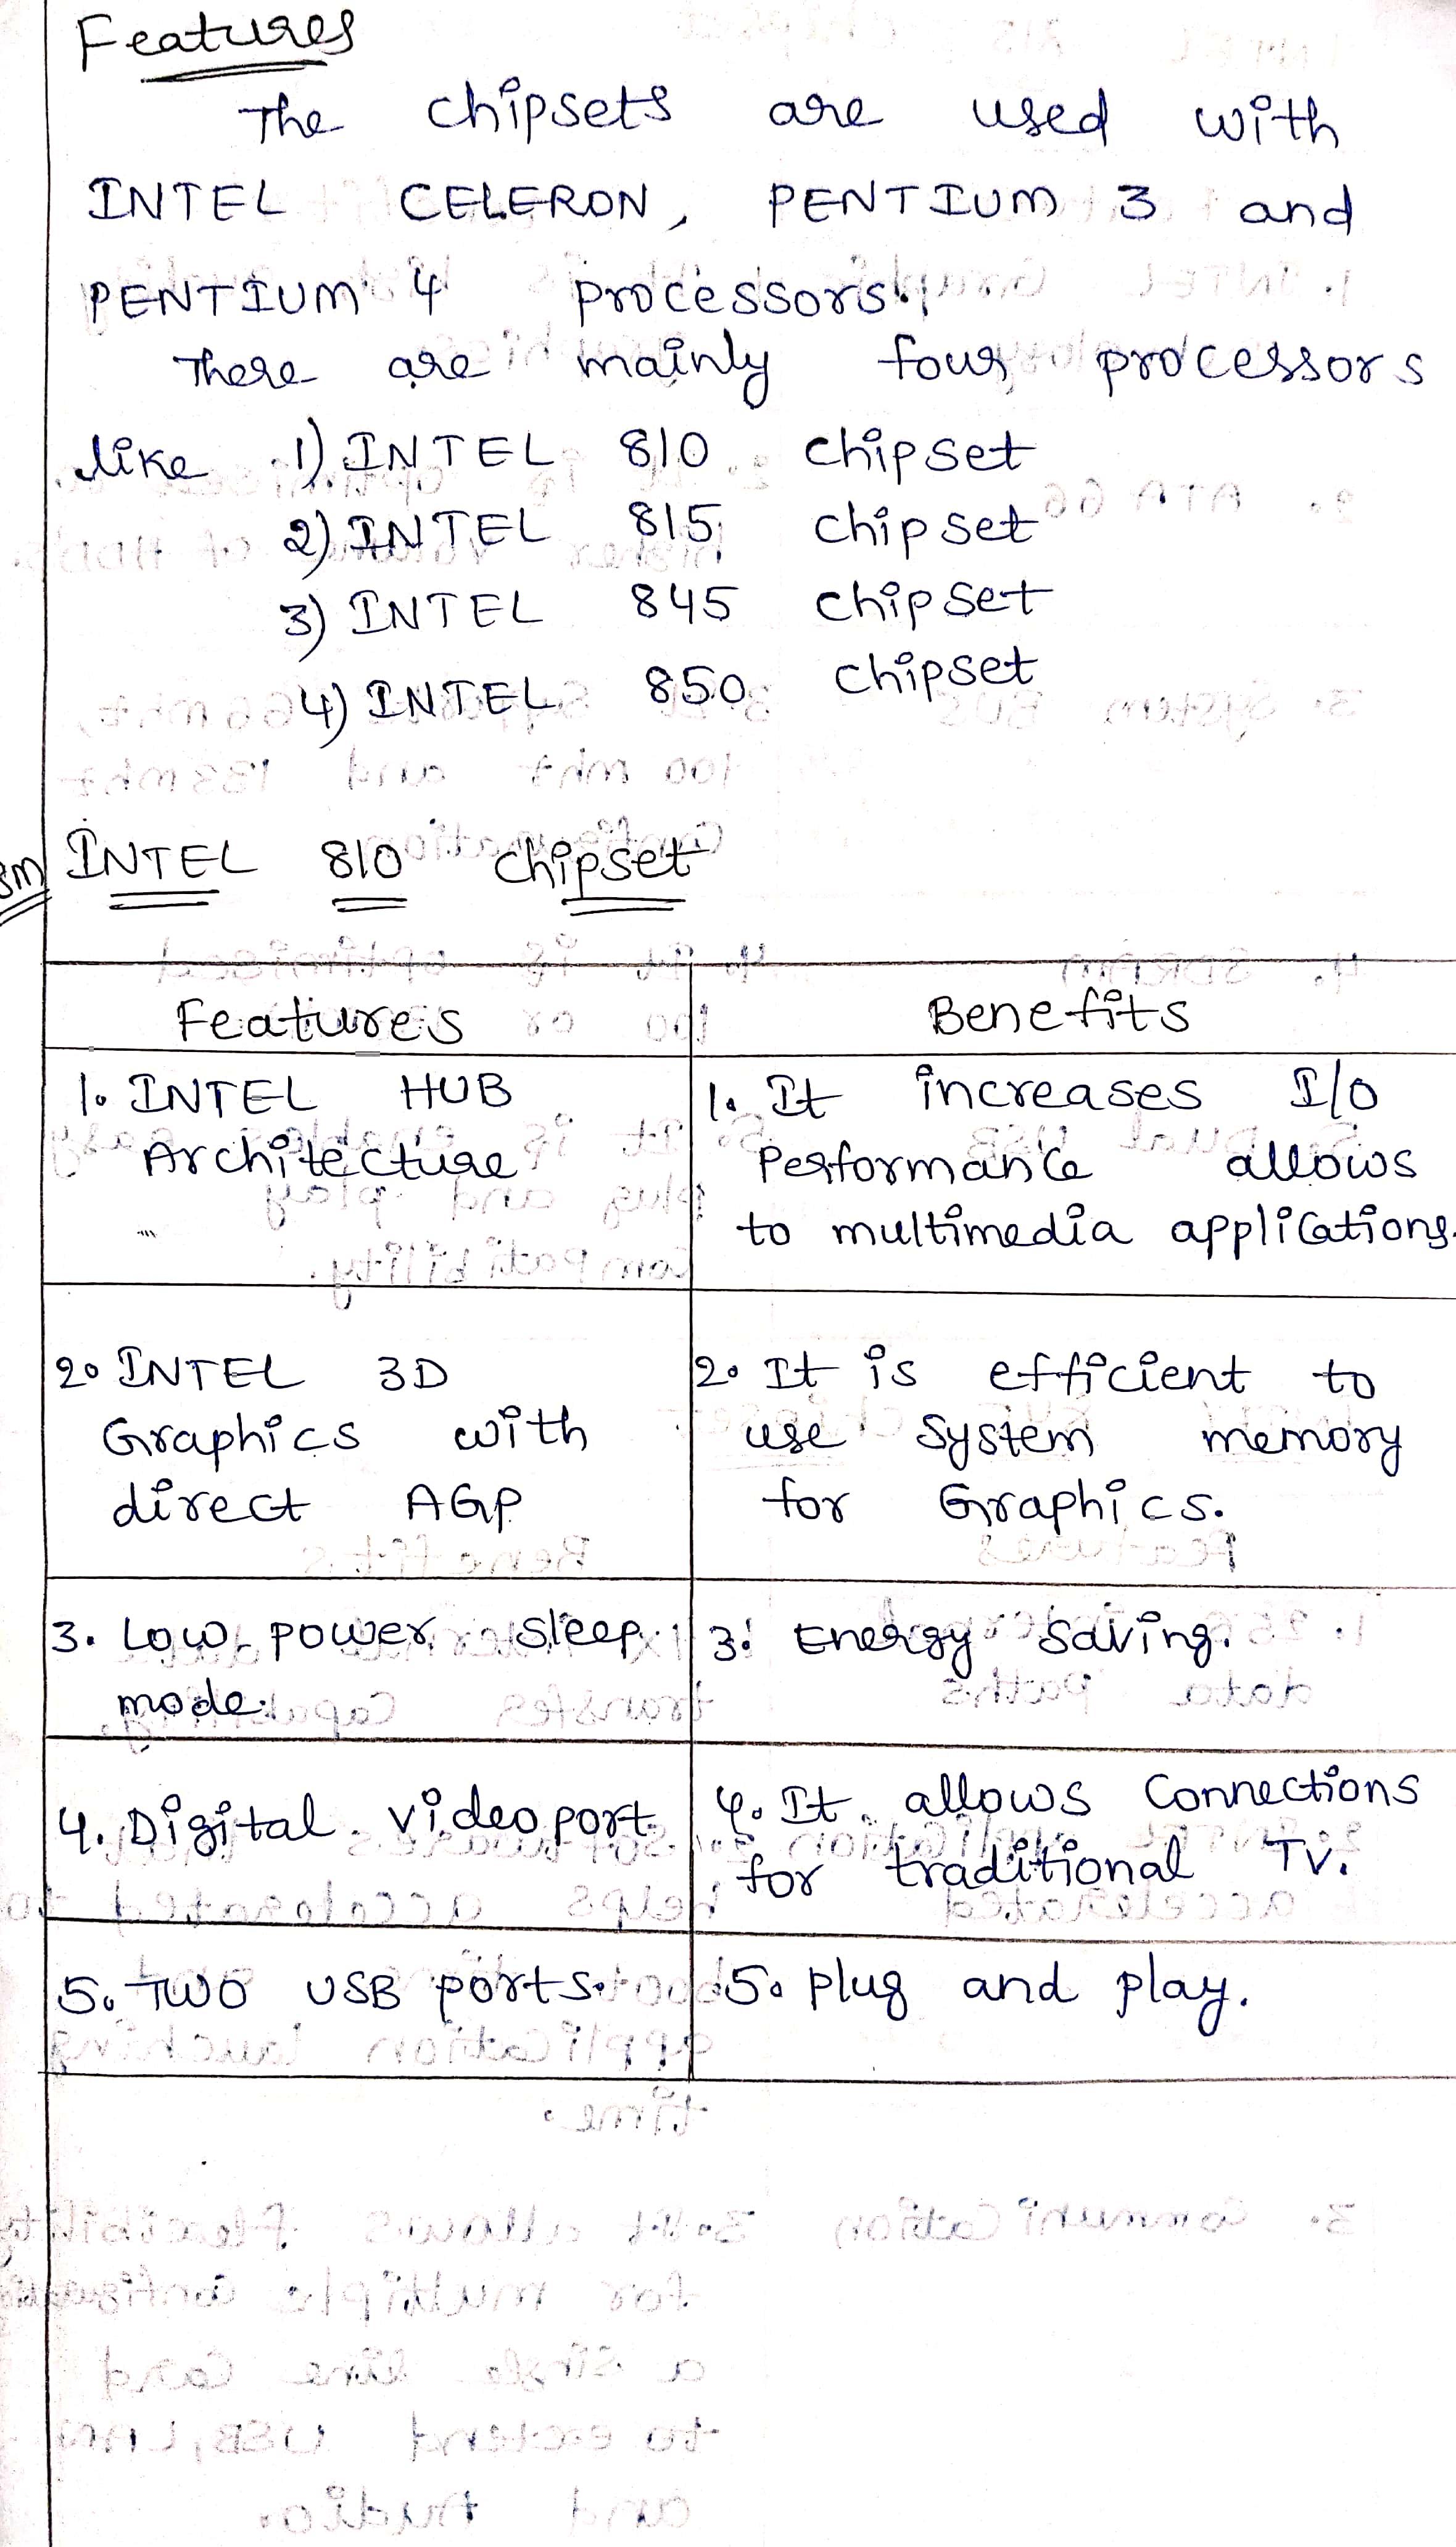 Features
The chipsets are used with
INTEL CELERON, PENTIUM 3 and
PENTIUM 4 processors.
There are mainly four processors
like 1) INTEL 810 chipset
2) INTEL 815 chipset
3) INTEL 845 chipset
4) INTEL 850 chipset
INTEL 810 chipset
Features
Benefits
1. INTEL HUB
Architecture
1. It increases I/O
Performance allows
to multimedia applications.
2. INTEL 3D
Graphics with
direct AGP
2. It is efficient to
use System memory
for Graphics.
3. Low power sleep
mode.
3. Energy saving.
4. Digital video port
4. It allows Connections
for traditional TV.
5. TWO USB ports.
5. Plug and play.